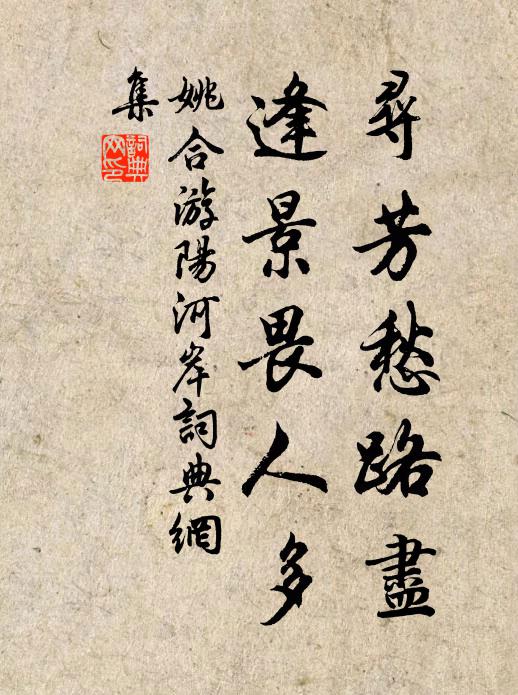 尋芳愁路盡
逢景畏人多
姚合游陽河岸詞典網
集
詞典
网印